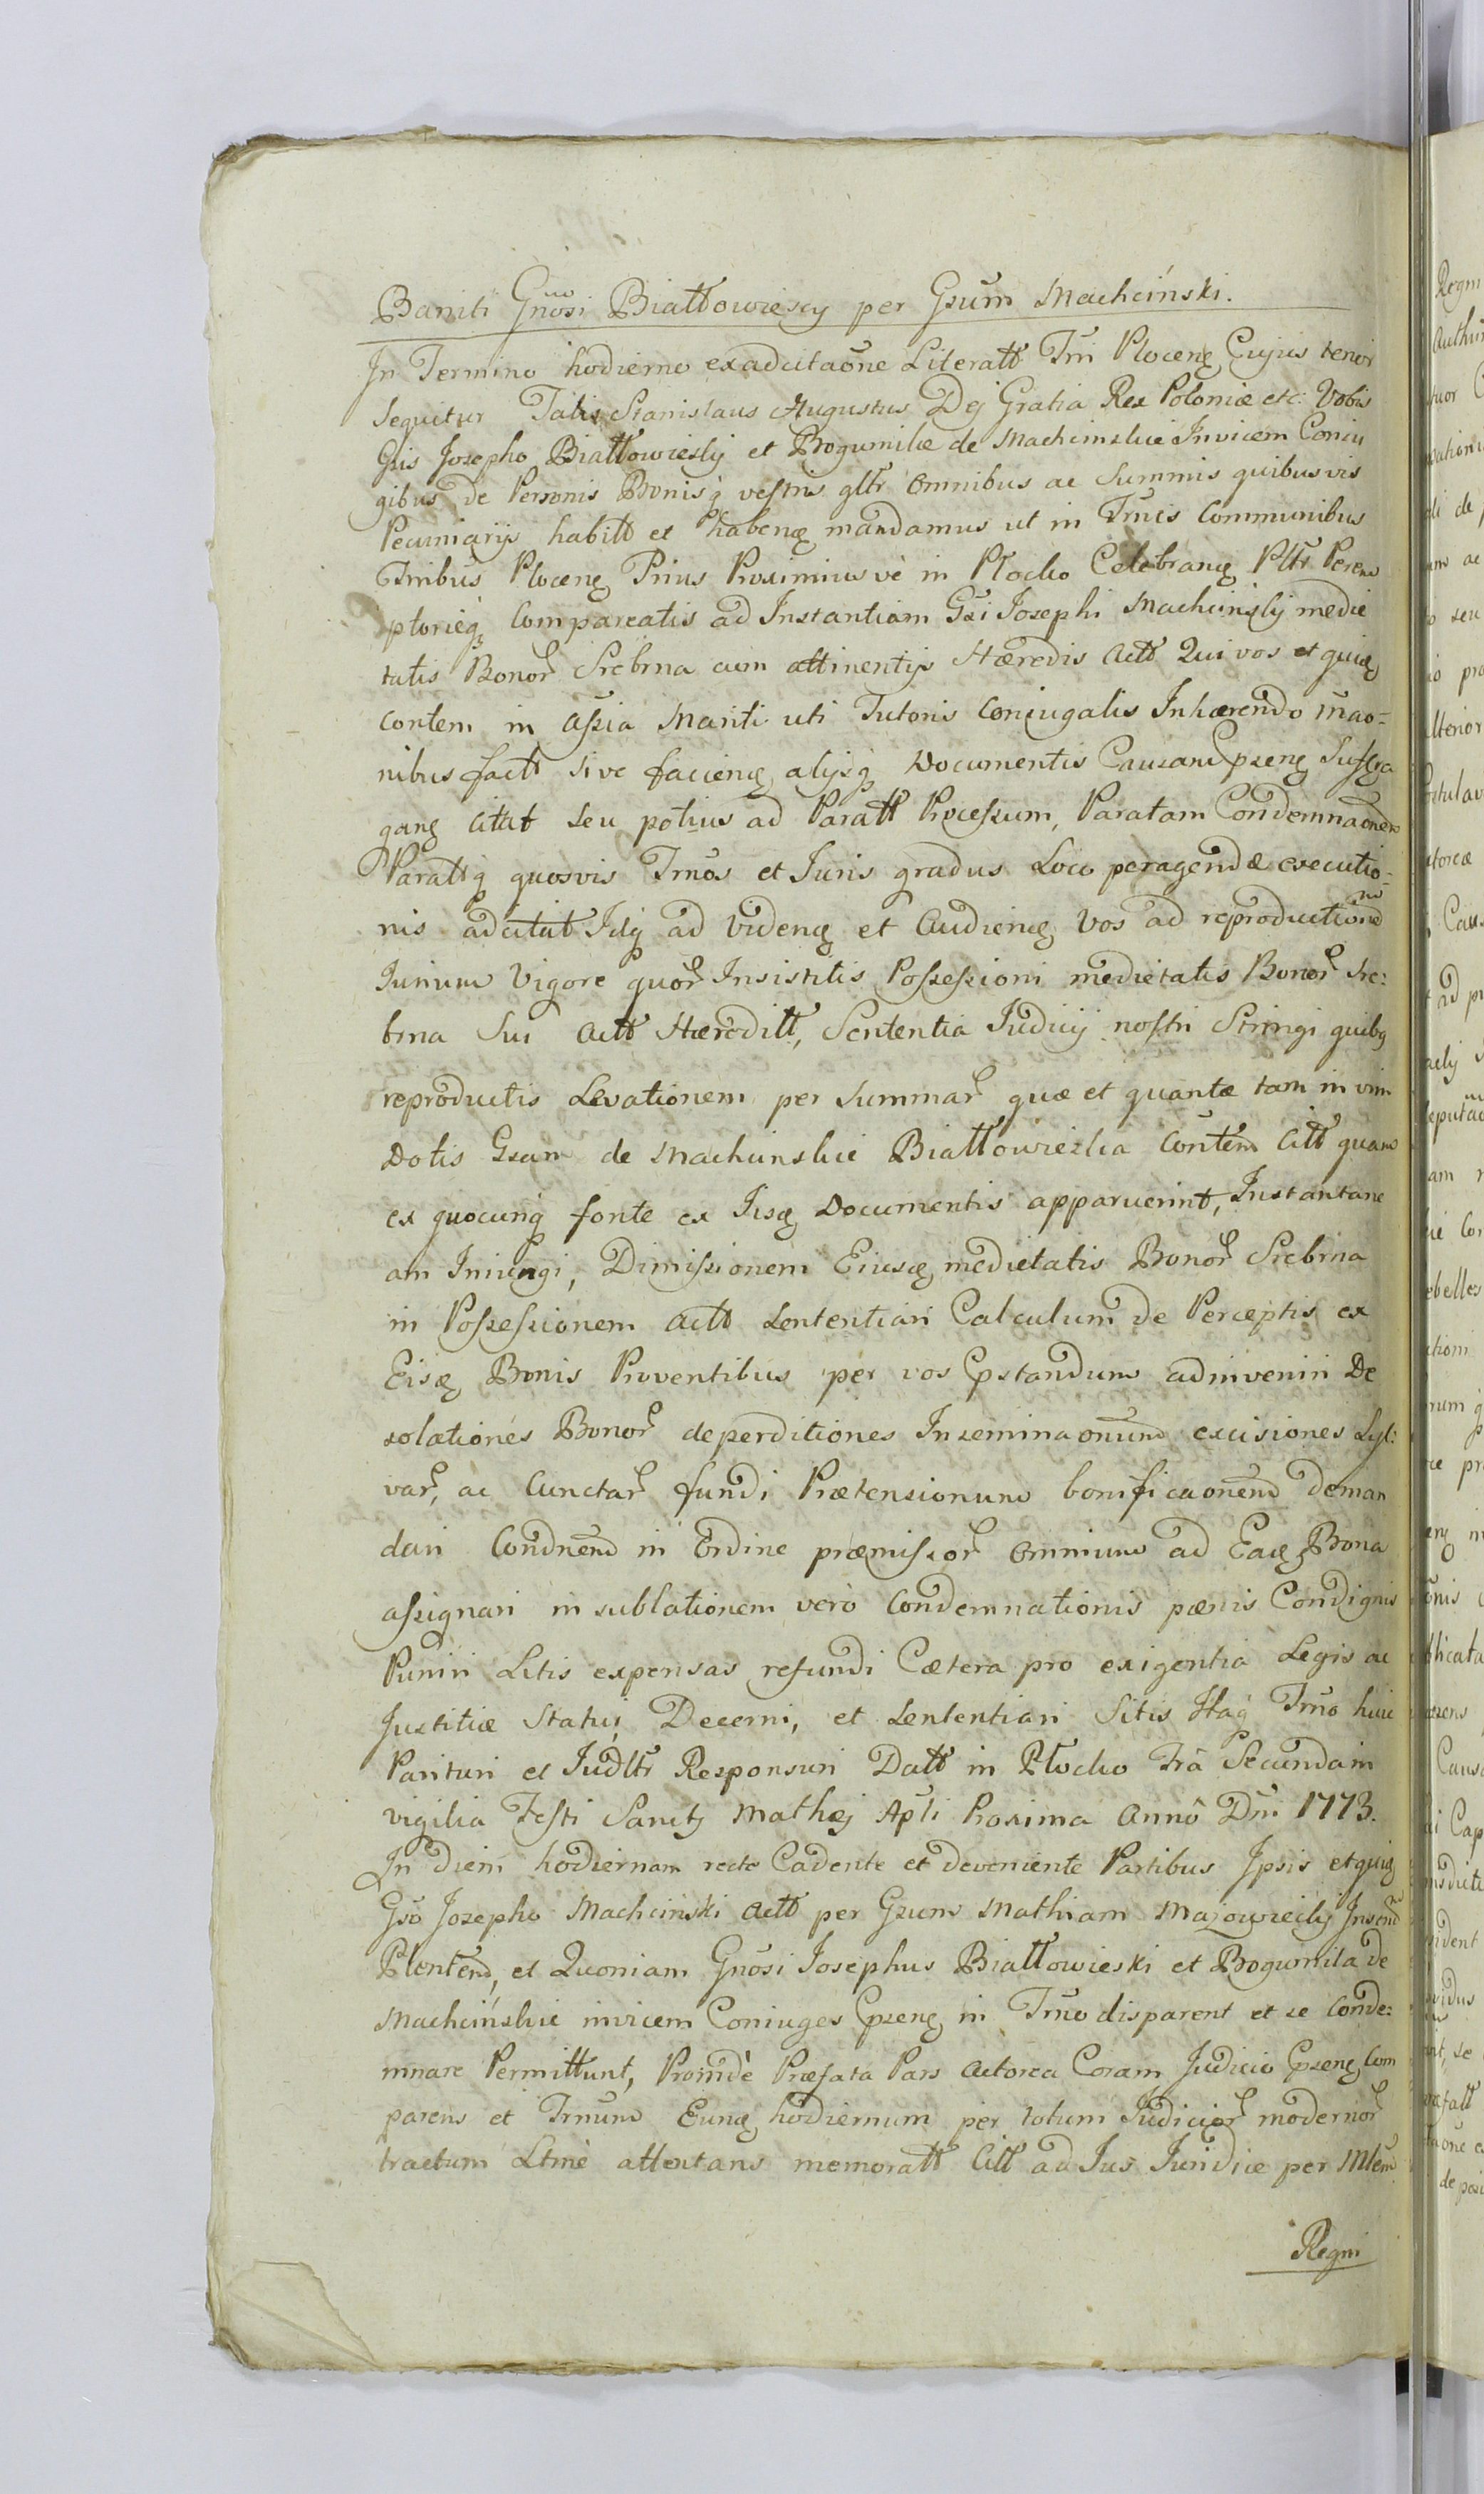 Baniti Gnosi Białłowiescy per Gsum Machciński.
In Termino hodierno exadcitaōne Literatt Trri Plocenę Cujus tenor
sequitur Talis Stanislaus Augustus Dej Gratia Rex Poloniæ etc: Vobis
Gsis Josepho Białłowiesky et Bogumilæ de Machcinskie Invicem Coniu
gibus de Personis Bonisq̃ vestris gltr omnibus ac Summis quibusvis
Pecuniarijs habitt et habenę mandamus ut in Trmis Communibus
Trribus Plocenę Prius Proximius vè in Płocko Celebranę Pltr Perem
ptorieq̨ Compareatis ad Instantiam Gsi Josephi Machcinskij medie
tatis Bonor Srebrna cum attinentijs Hæredis Actt Qui vos et quię
contem in assia Mariti uti Tutoris Coniugalis Inhærendo mao=
nibus factt sive facienę alijsq̨ Documentis Causam psenę Suffra
ganę citat seu potius ad Paratt Processum, Paratam Condemnaōnem
Parattq̨ quosvis Trnos et Juris gradus Loco peragendæ executio=
nis adcitat Idq̨ ad Videnę et Audienę Vos ad reproductionem
Jurium Vigore quor Insistitis Possessioni medietatis Bonor Sre:
brna Sui Actt Hæreditt, Sententia Judicij nostri Stringi quibq
reproductis Levationem per Summar quæ et quantæ tam in vim
Dotis Gsam de Machcinskie Białłowieska Contem Citt quam
ex quocunq̨ fonte ex Iisdę Documentis apparuerint, Instantane
am Iniungi, Dimissionem Eiusdę medietatis Bonor Srebrna
in Possessionem Actt sententiari Calculum de Perceptis ex
Eisdę Bonis Proventibus per vos Epstandum adinveniri De
solationes Bonor deperditiones Inseminaonum excisiones Syl:
var, ac Cunctar fundi Prætensionum bonificaonem deman
dari Condnem in Ordine præmissor Omnium ad Eadę Bona
assignari in sublationem verò Condemnationis pænis Condignis
Puniri Litis expensas refundi Cætera pro exigentia Legis ac
Justitiæ Statui Decerni, et sententiari Sitis Itaq̨ Trno huic
Parituri et Judltr Responsuri Datt in Płocko Frâ Secunda in
vigilia Festi Sancti Mathæj Apli Proxima Annô Dni 1773.
In diem hodiernam recte Cadente et deveniente Partibus Ipsis et quię
Gso Josepho Machcinski Actt per Gsum Mathiam Majowiecky
Plentend, et Quoniam Gnosi Josephus Białłowieski et Bogumila de
Machcińskie invicem Coniuges psenę in Trmo disparent et se Conde:
mnare Permittunt, Proindè Præfata Pars Actorea Coram Judicio psenę Com
parens et Trnum Eundę hodiernum per totum Judicior modernor
tractum Ltmè attentans memoratt Citt ad Jus Juridice per Mlem
Regni